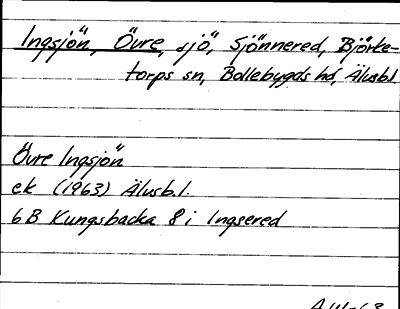 Ingsjön, Övre, sjö, Sjönnered, Björke-
torps sn, Bollebygds hd, Älvsb.l.
Övre Ingsjön
ek (1963) Älvsb.l.
6B Kungsbacka 8 i Ingsered